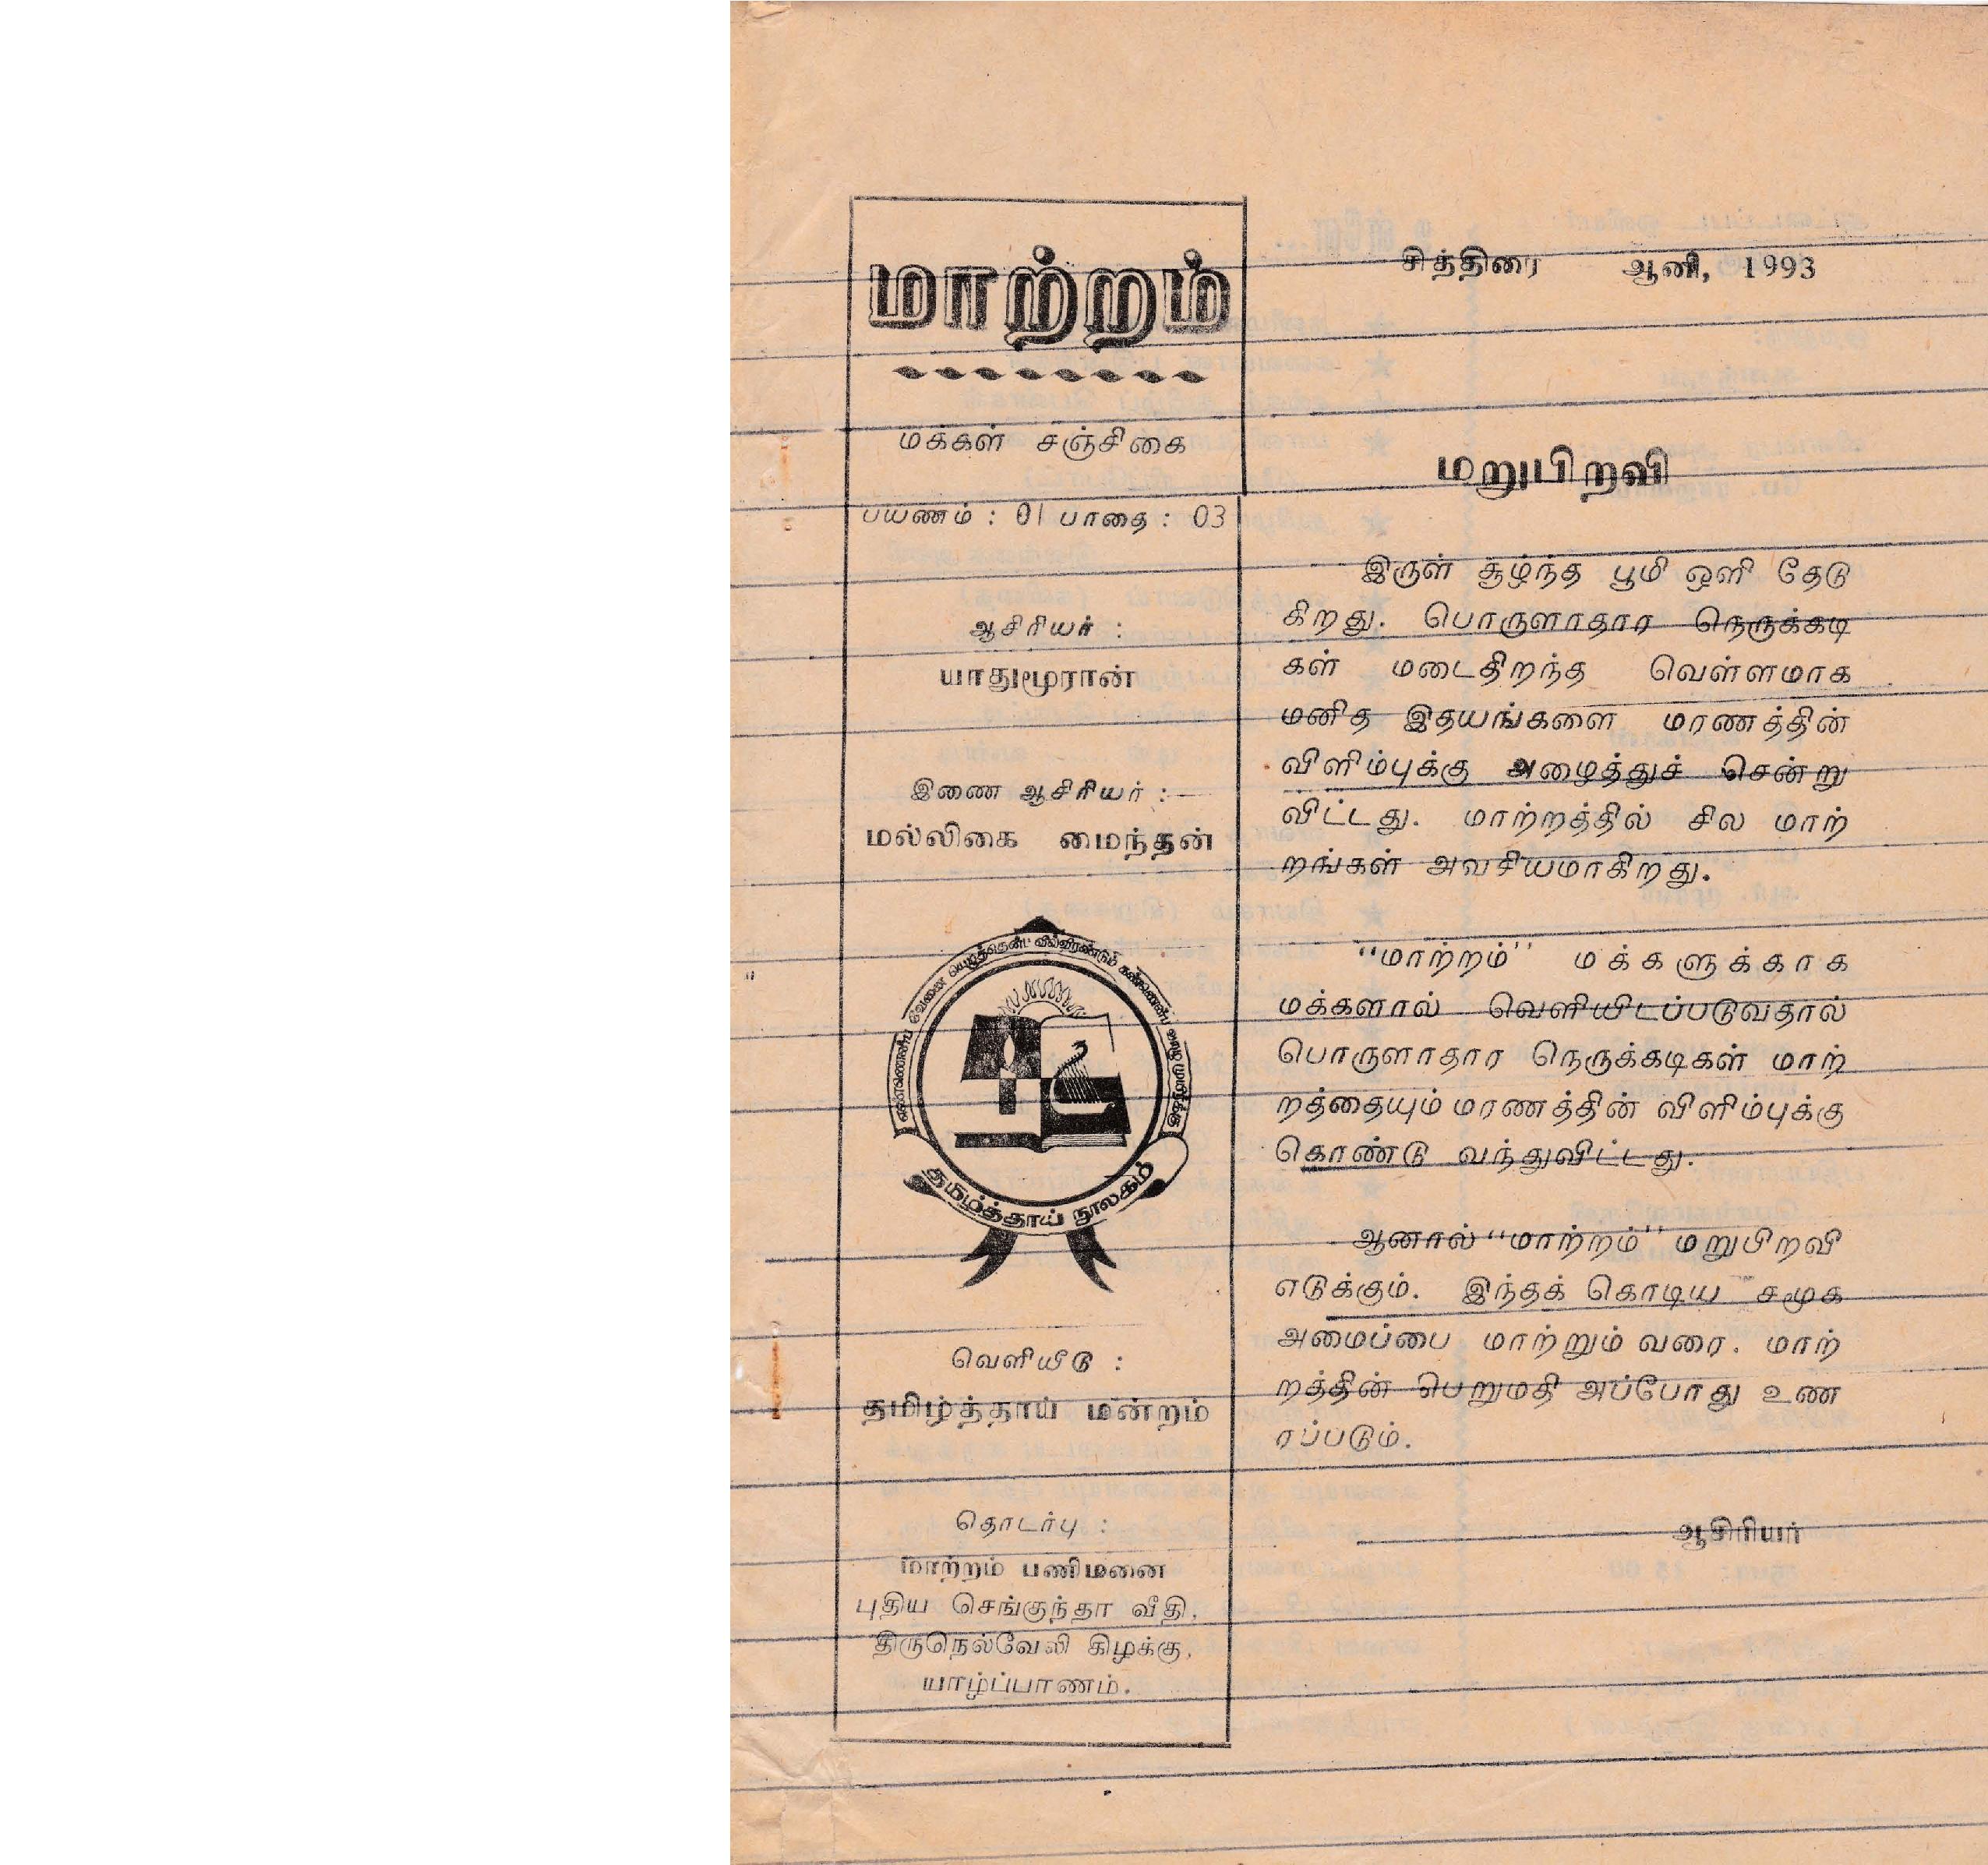 மாற்றம்
மக்கள் சஞ்சிகை
பயணம் : 01 பாதை : 03
ஆசிரியர் :
யாதுமூரான்
இணை ஆசிரியர் :
மல்லிகை மைந்தன்
தமிழ்த்தாய் நூலகம்
வெளியீடு :
தமிழ்த்தாய் மன்றம்
தொடர்பு :
மாற்றம் பணிமனை
புதிய செங்குந்தா வீதி,
திருநெல்வேலி கிழக்கு,
யாழ்ப்பாணம்.
சித்திரை ஆனி, 1993
மறுபிறவி
இருள் சூழ்ந்த பூமி ஒளி தேடு
கிறது. பொருளாதார நெருக்கடி
கள் மடைதிறந்த வெள்ளமாக
மனித இதயங்களை மரணத்தின்
விளிம்புக்கு அழைத்துச் சென்று
விட்டது. மாற்றத்தில் சில மாற்
றங்கள் அவசியமாகிறது.
"மாற்றம்" மக்களுக்காக
மக்களால் வெளியிடப்படுவதால்
பொருளாதார நெருக்கடிகள் மாற்
றத்தையும் மரணத்தின் விளிம்புக்கு
கொண்டு வந்துவிட்டது.
ஆனால் "மாற்றம்" மறுபிறவி
எடுக்கும். இந்தக் கொடிய சமூக
அமைப்பை மாற்றும் வரை. மாற்
றத்தின் பெறுமதி அப்போது உண
ரப்படும்.
ஆசிரியர்